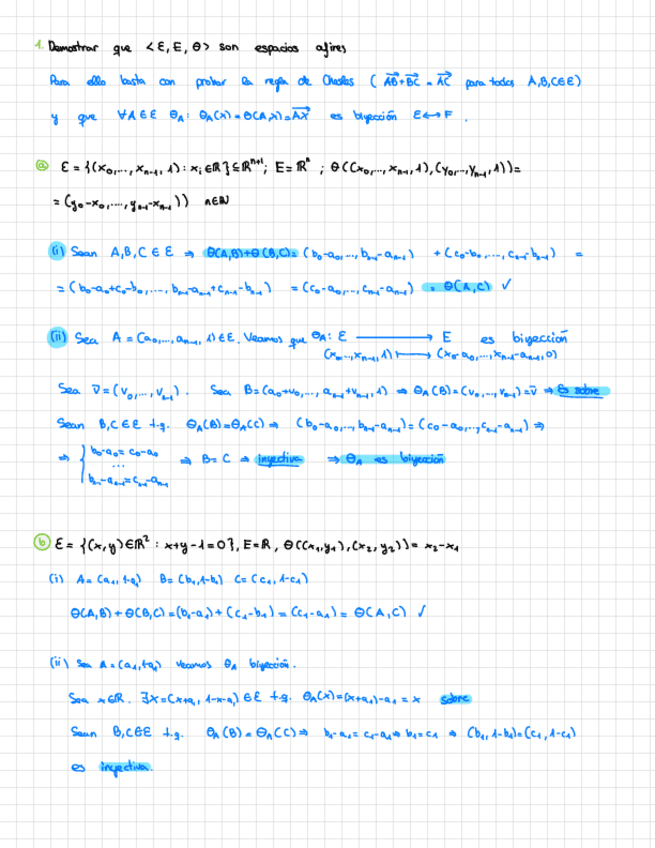 1. Demostrar que <ℰ, E, Θ> son espacios afines
Para ello basta con probar la regla de Chasles ( AB⃗+BC⃗ = AC⃗ para todos A,B,C∈ℰ)
y que ∀A∈ℰ Θ_A: Θ_A(X)=Θ(A,X)=AX⃗ es biyección E↔F.
ⓐ ℰ = {(x₀,..., xₙ₋₁, 1) : xᵢ∈ℝ} ⊆ ℝⁿ⁺¹; E = ℝⁿ ; Θ((x₀,..., xₙ₋₁, 1), (y₀,..., yₙ₋₁, 1)) =
= (y₀-x₀,....., yₙ₋₁-xₙ₋₁)) n∈ℕ
(i) Sean A,B,C ∈ ℰ ⇒ Θ(A,B)+Θ(B,C)= (b₀-a₀,..., bₙ₋₁-aₙ₋₁) + (c₀-b₀,...., cₙ₋₁-bₙ₋₁) =
= (b₀-a₀+c₀-b₀,...., bₙ₋₁-aₙ₋₁+cₙ₋₁-bₙ₋₁) = (c₀-a₀,..., cₙ₋₁-aₙ₋₁) = Θ(A,C) ✓
(ii) Sea A = (a₀,..., aₙ₋₁, 1)∈ℰ. Veamos que Θ_A: ℰ ⟶ E es biyección
(x₀,...,xₙ₋₁,1) ⟼ (x₀-a₀,...,xₙ₋₁-aₙ₋₁,0)
Sea v̄=(v₀,..., vₙ₋₁). Sea B=(a₀+v₀,..., aₙ₋₁+vₙ₋₁, 1) ⇒ Θ_A(B)=(v₀,..., vₙ₋₁)=v̄ ⇒ Es sobre
Sean B,C∈ℰ t.q. Θ_A(B)=Θ_A(C) ⇒ (b₀-a₀,..., bₙ₋₁-aₙ₋₁)=(c₀-a₀,..., cₙ₋₁-aₙ₋₁) ⇒
⇒ { b₀-a₀= c₀-a₀
... ⇒ B= C ⇒ inyectiva ⇒ Θ_A es biyección
bₙ₋₁-aₙ₋₁=cₙ₋₁-aₙ₋₁
ⓑ ℰ = {(x,y)∈ℝ² : x+y-1=0}, E=ℝ, Θ((x₁,y₁),(x₂,y₂))= x₂-x₁
(i) A= (a₁, 1-a₁) B= (b₁, 1-b₁) C= (c₁, 1-c₁)
Θ(A,B) + Θ(B,C) =(b₁-a₁) + (c₁-b₁) = (c₁-a₁) = Θ(A,C) ✓
(ii) Sea A=(a₁,1-a₁) veamos Θ_A biyección.
Sea x∈ℝ. ∃X=(x+a₁, 1-x-a₁)∈ℰ t.q. Θ_A(X)=(x+a₁)-a₁ = x sobre
Sean B,C∈ℰ t.q. Θ_A(B) = Θ_A(C) ⇒ b₁-a₁= c₁-a₁ ⇒ b₁=c₁ ⇒ (b₁, 1-b₁)=(c₁, 1-c₁)
es inyectiva.